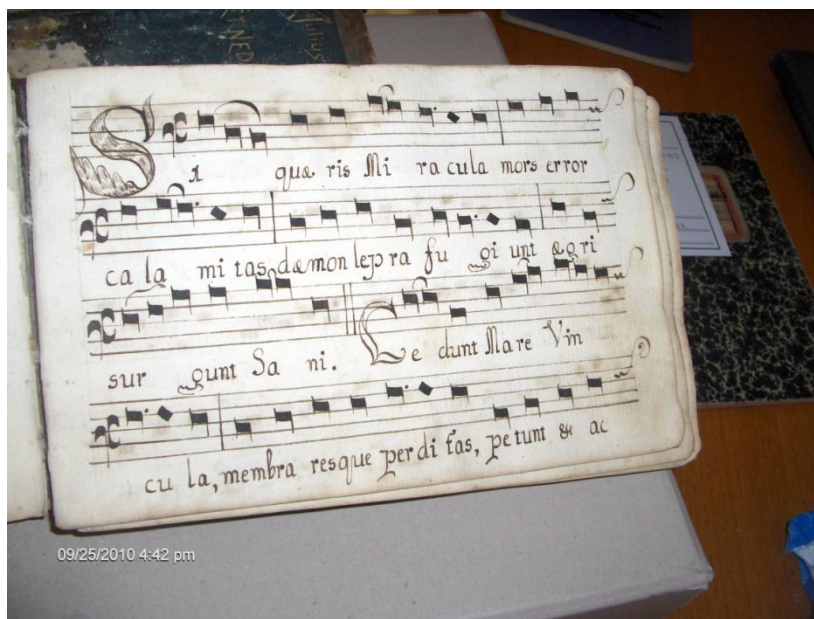 Julius
Si quæ ris Mi ra cula mors error
ca la mi tas dæmon lep ra fu gi unt ægri
sur gunt Sa ni. Ce dunt Mare Vin
cu la, membra resque perdi tas, petunt & ac
09/25/2010 4:42 pm